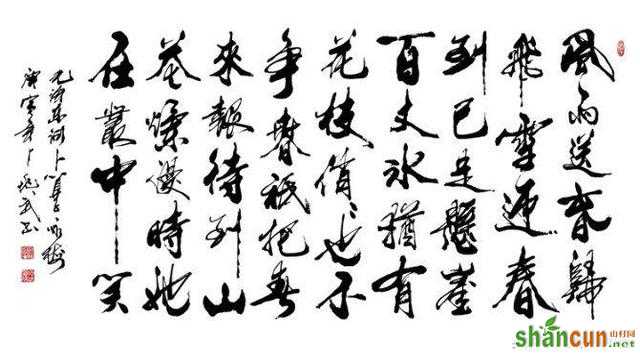 風雨送春歸
飛雪迎春
到已是懸崖
百丈冰猶有
花枝俏〻也不
争春祇把春
來報待到山
花爛漫時她
在叢中笑
毛澤東词卜算子咏梅
庚寅年
shancun 山村网
.net